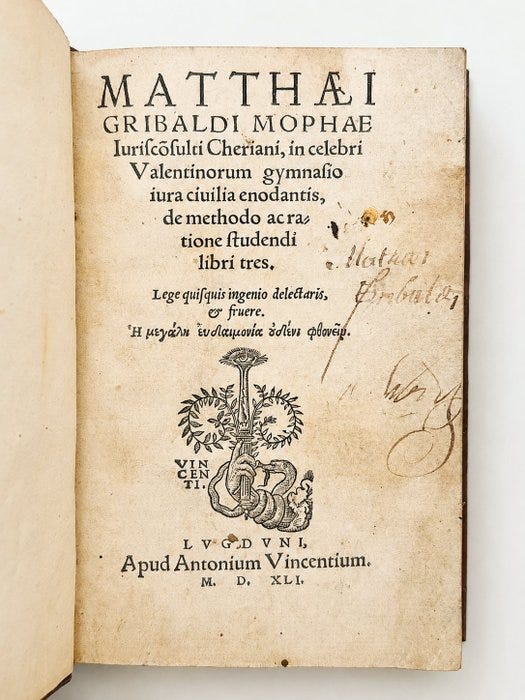 MATTHÆI
GRIBALDI MOPHAE
Iuriscõsulti Cheriani, in celebri
Valentinorum gymnasio
iura ciuilia enodantis,
de methodo ac ra-
tione studendi
libri tres.
Lege quisquis ingenio delectaris,
& fruere.
Ἡ μεγάλη ἐυδαιμονία ουδενι φθονεῖν.
VIN
CEN
TI.
LVGDVNI,
Apud Antonium Vincentium.
M. D. XLI.